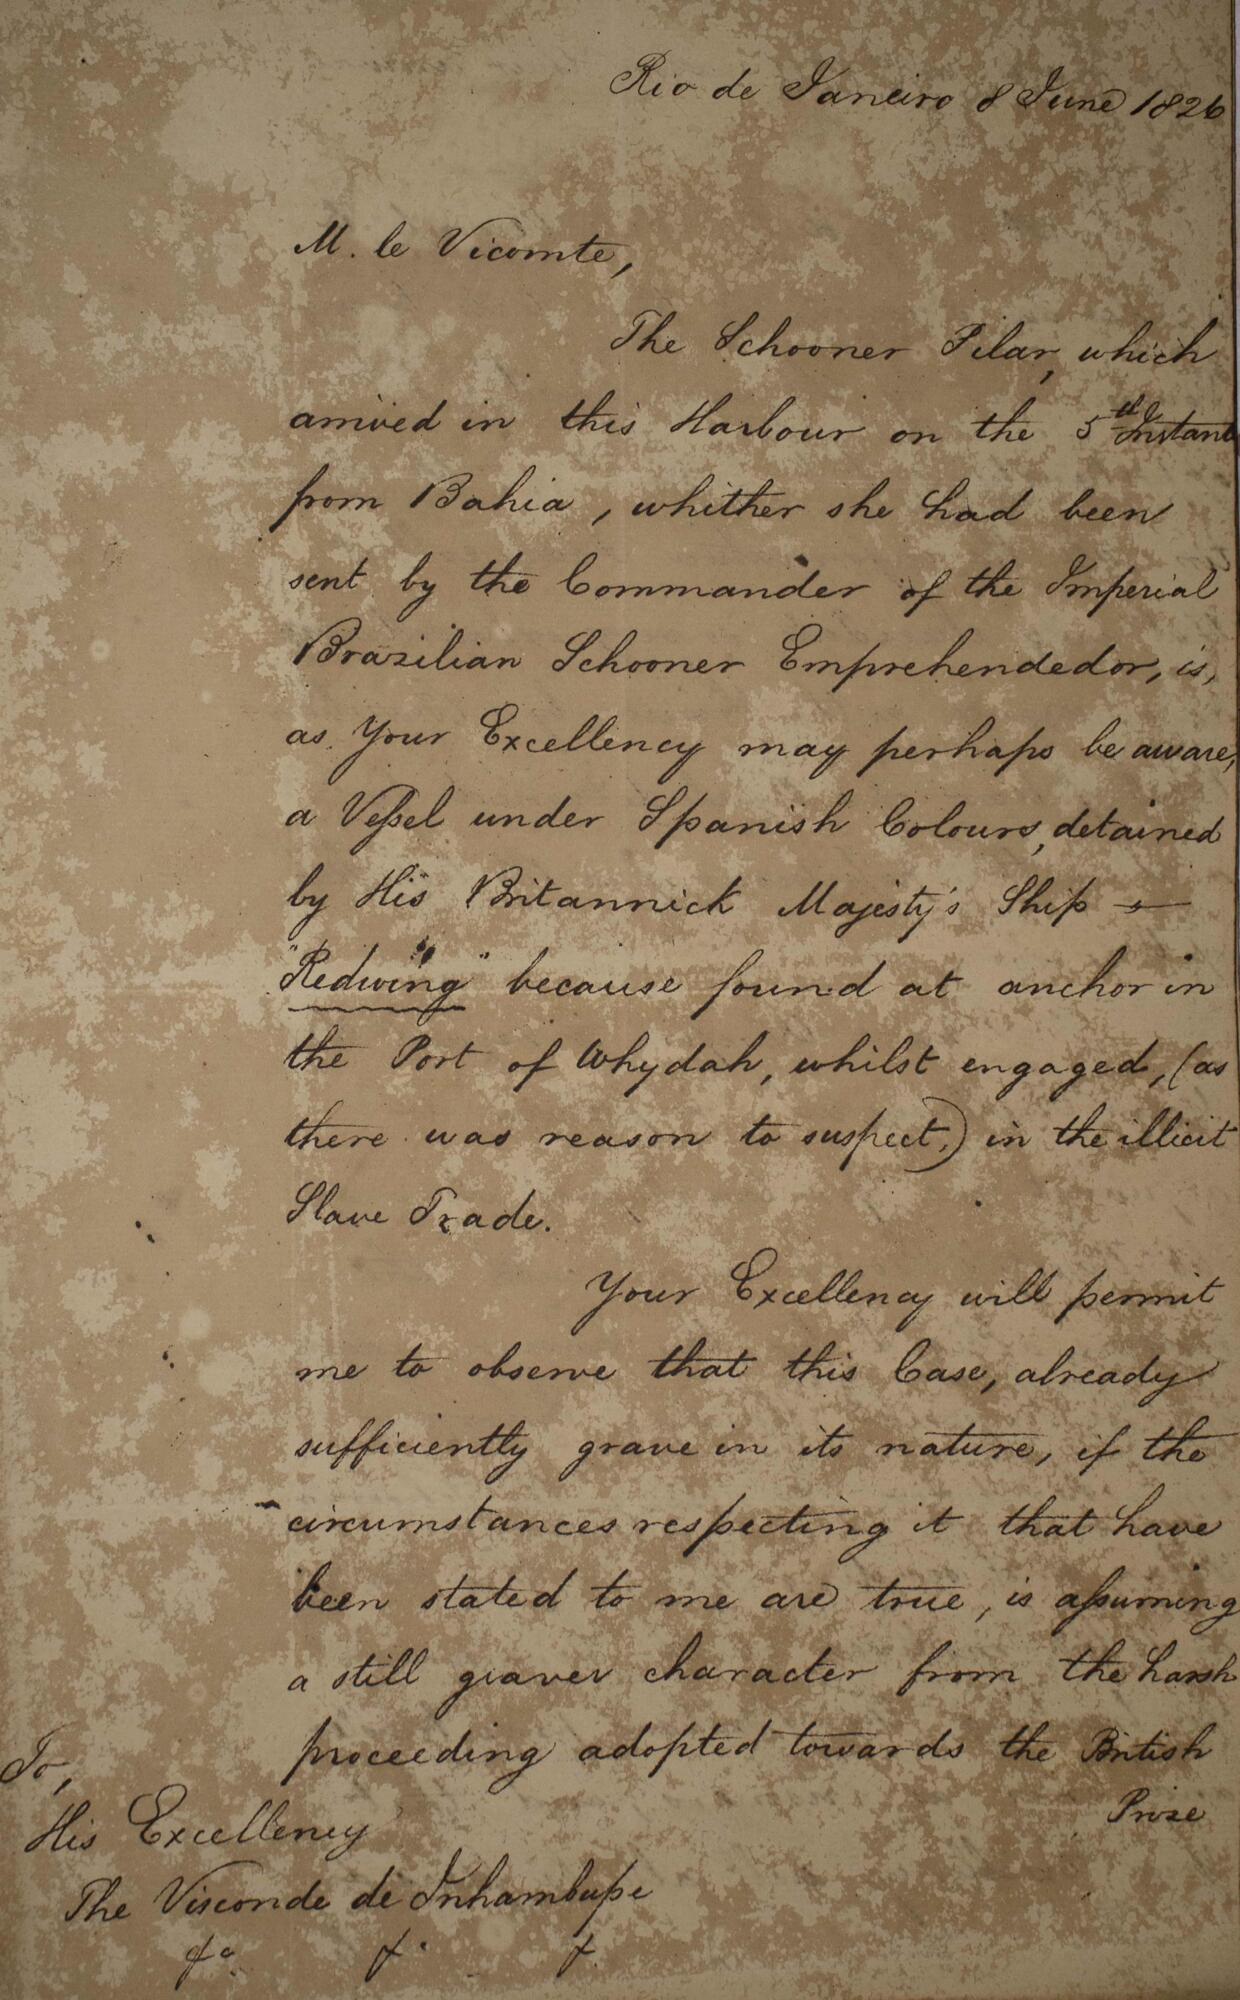 Rio de Janeiro 8 June 1826
M. le Vicomte,
The Schooner Pilar, which
arrived in this Harbour on the 5th Instant
from Bahia, whither she had been
sent by the Commander of the Imperial
Brazilian Schooner Emprehendedor, is,
as Your Excellency may perhaps be aware,
a Veſsel under Spanish Colours, detained
by His Britannick Majesty's Ship —
"Redwing" because found at anchor in
the Port of Whydah, whilst engaged, (as
there was reason to suspect,) in the illicit
Slave Trade.
Your Excellency will permit
me to observe that this Case, already
sufficiently grave in its nature, if the
circumstances respecting it that have
been stated to me are true, is aſsuming
a still graver character from the harsh
proceeding adopted towards the British
Prize
To,
His Excellency
The Visconde de Inhambupe
&c. &. &